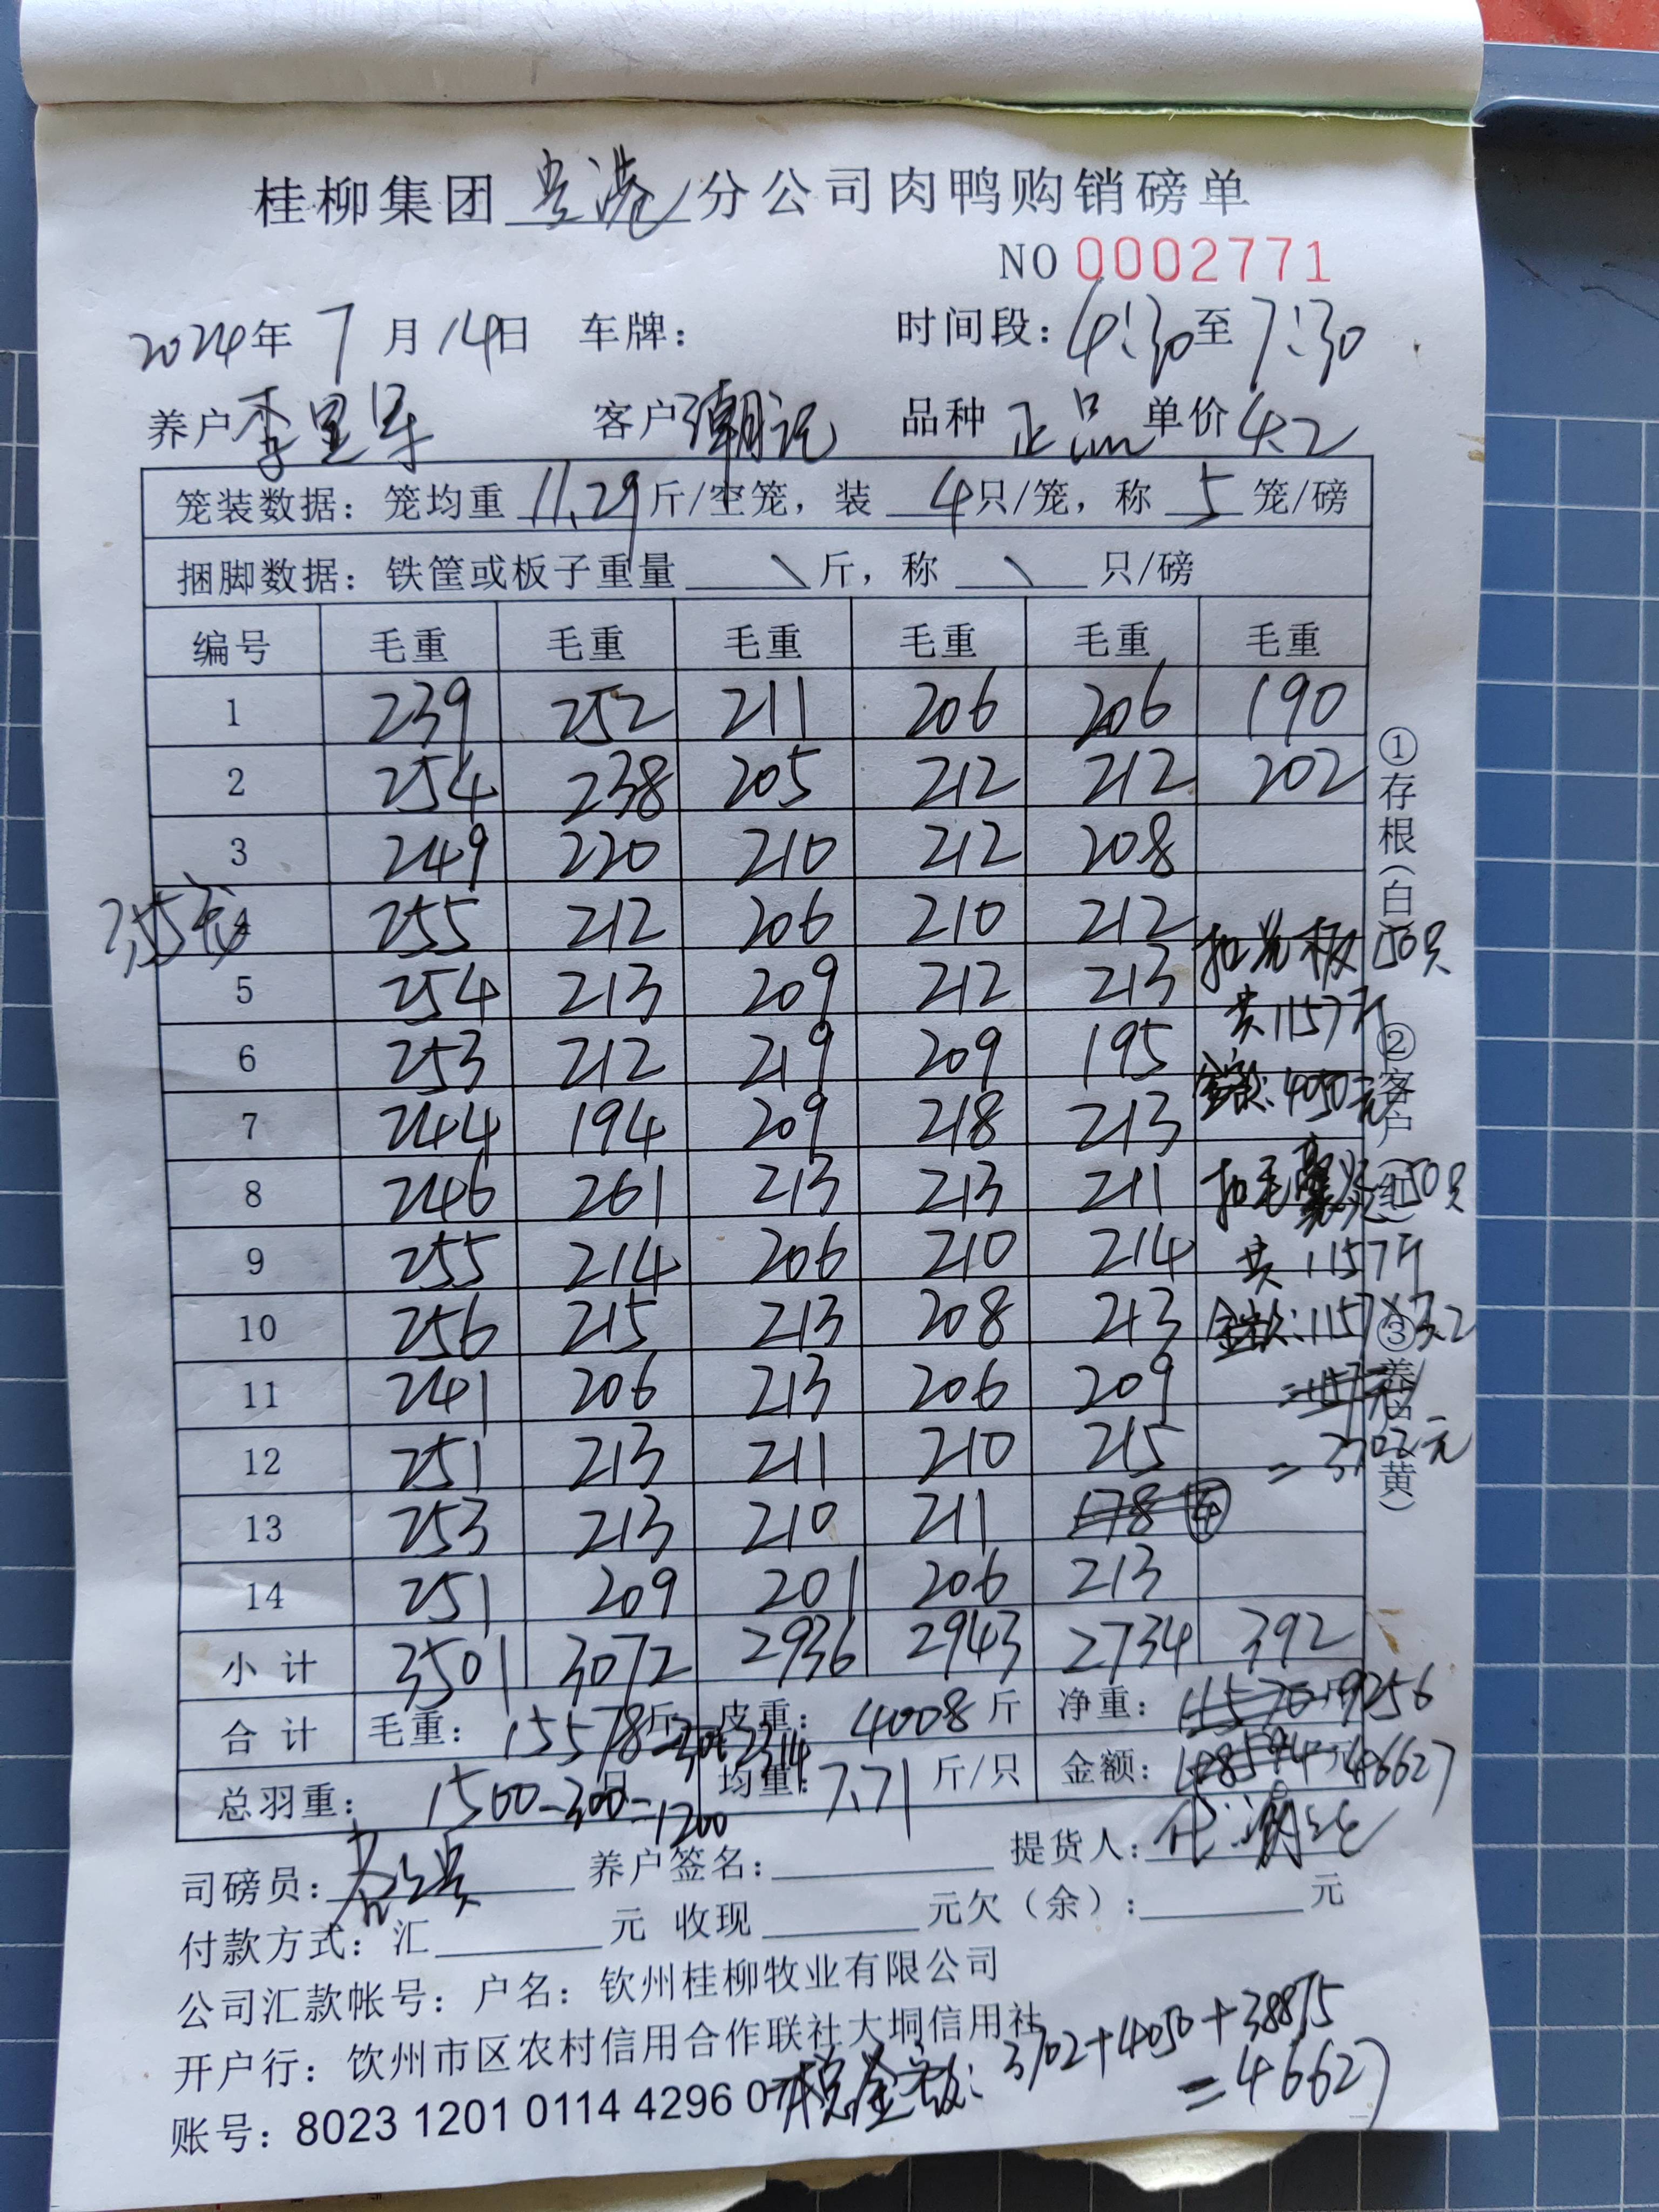 桂柳集团 贵港 分公司肉鸭购销磅单
NO 0002771
2024年 7 月 14日 车牌： 时间段：4:30至 7:30
养户 李里军 客户 潮记 品种 正品 单价 4.2
笼装数据：笼均重 11.29 斤/空笼，装 4 只/笼，称 5 笼/磅
捆脚数据：铁筐或板子重量 \ 斤，称 \ 只/磅
编号 毛重 毛重 毛重 毛重 毛重 毛重
1 239 252 211 206 206 190
2 254 238 205 212 212 202
3 249 220 210 212 208
4 255 212 206 210 212
5 254 213 209 212 213
6 253 212 219 209 195
7 244 194 209 218 213
8 246 261 213 213 211
9 255 214 206 210 214
10 256 215 213 208 213
11 241 206 213 206 209
12 251 213 211 210 215
13 253 213 210 211 178 ④
14 251 209 201 206 213
小计 3501 3072 2936 2943 2734 392
合计 毛重：15578斤 2314 皮重：4008斤 净重：11570 9256
总羽重：1500-300=1200 只 均重：7.71 斤/只 金额：48594 元 46627
355
板150只
共1157斤
金额：4050元
扣毛 150只
共1157斤
金额：1157×3.2
=3702元
①存根（白）②客户（红）③养户（黄）
司磅员： 养户签名： 提货人：
付款方式：汇 元 收现 元欠（余）： 元
公司汇款帐号：户名：钦州桂柳牧业有限公司
开户行：钦州市区农村信用合作联社大垌信用社
账号：8023 1201 0114 4296 07
总金额：3702+4050+38875
=46627